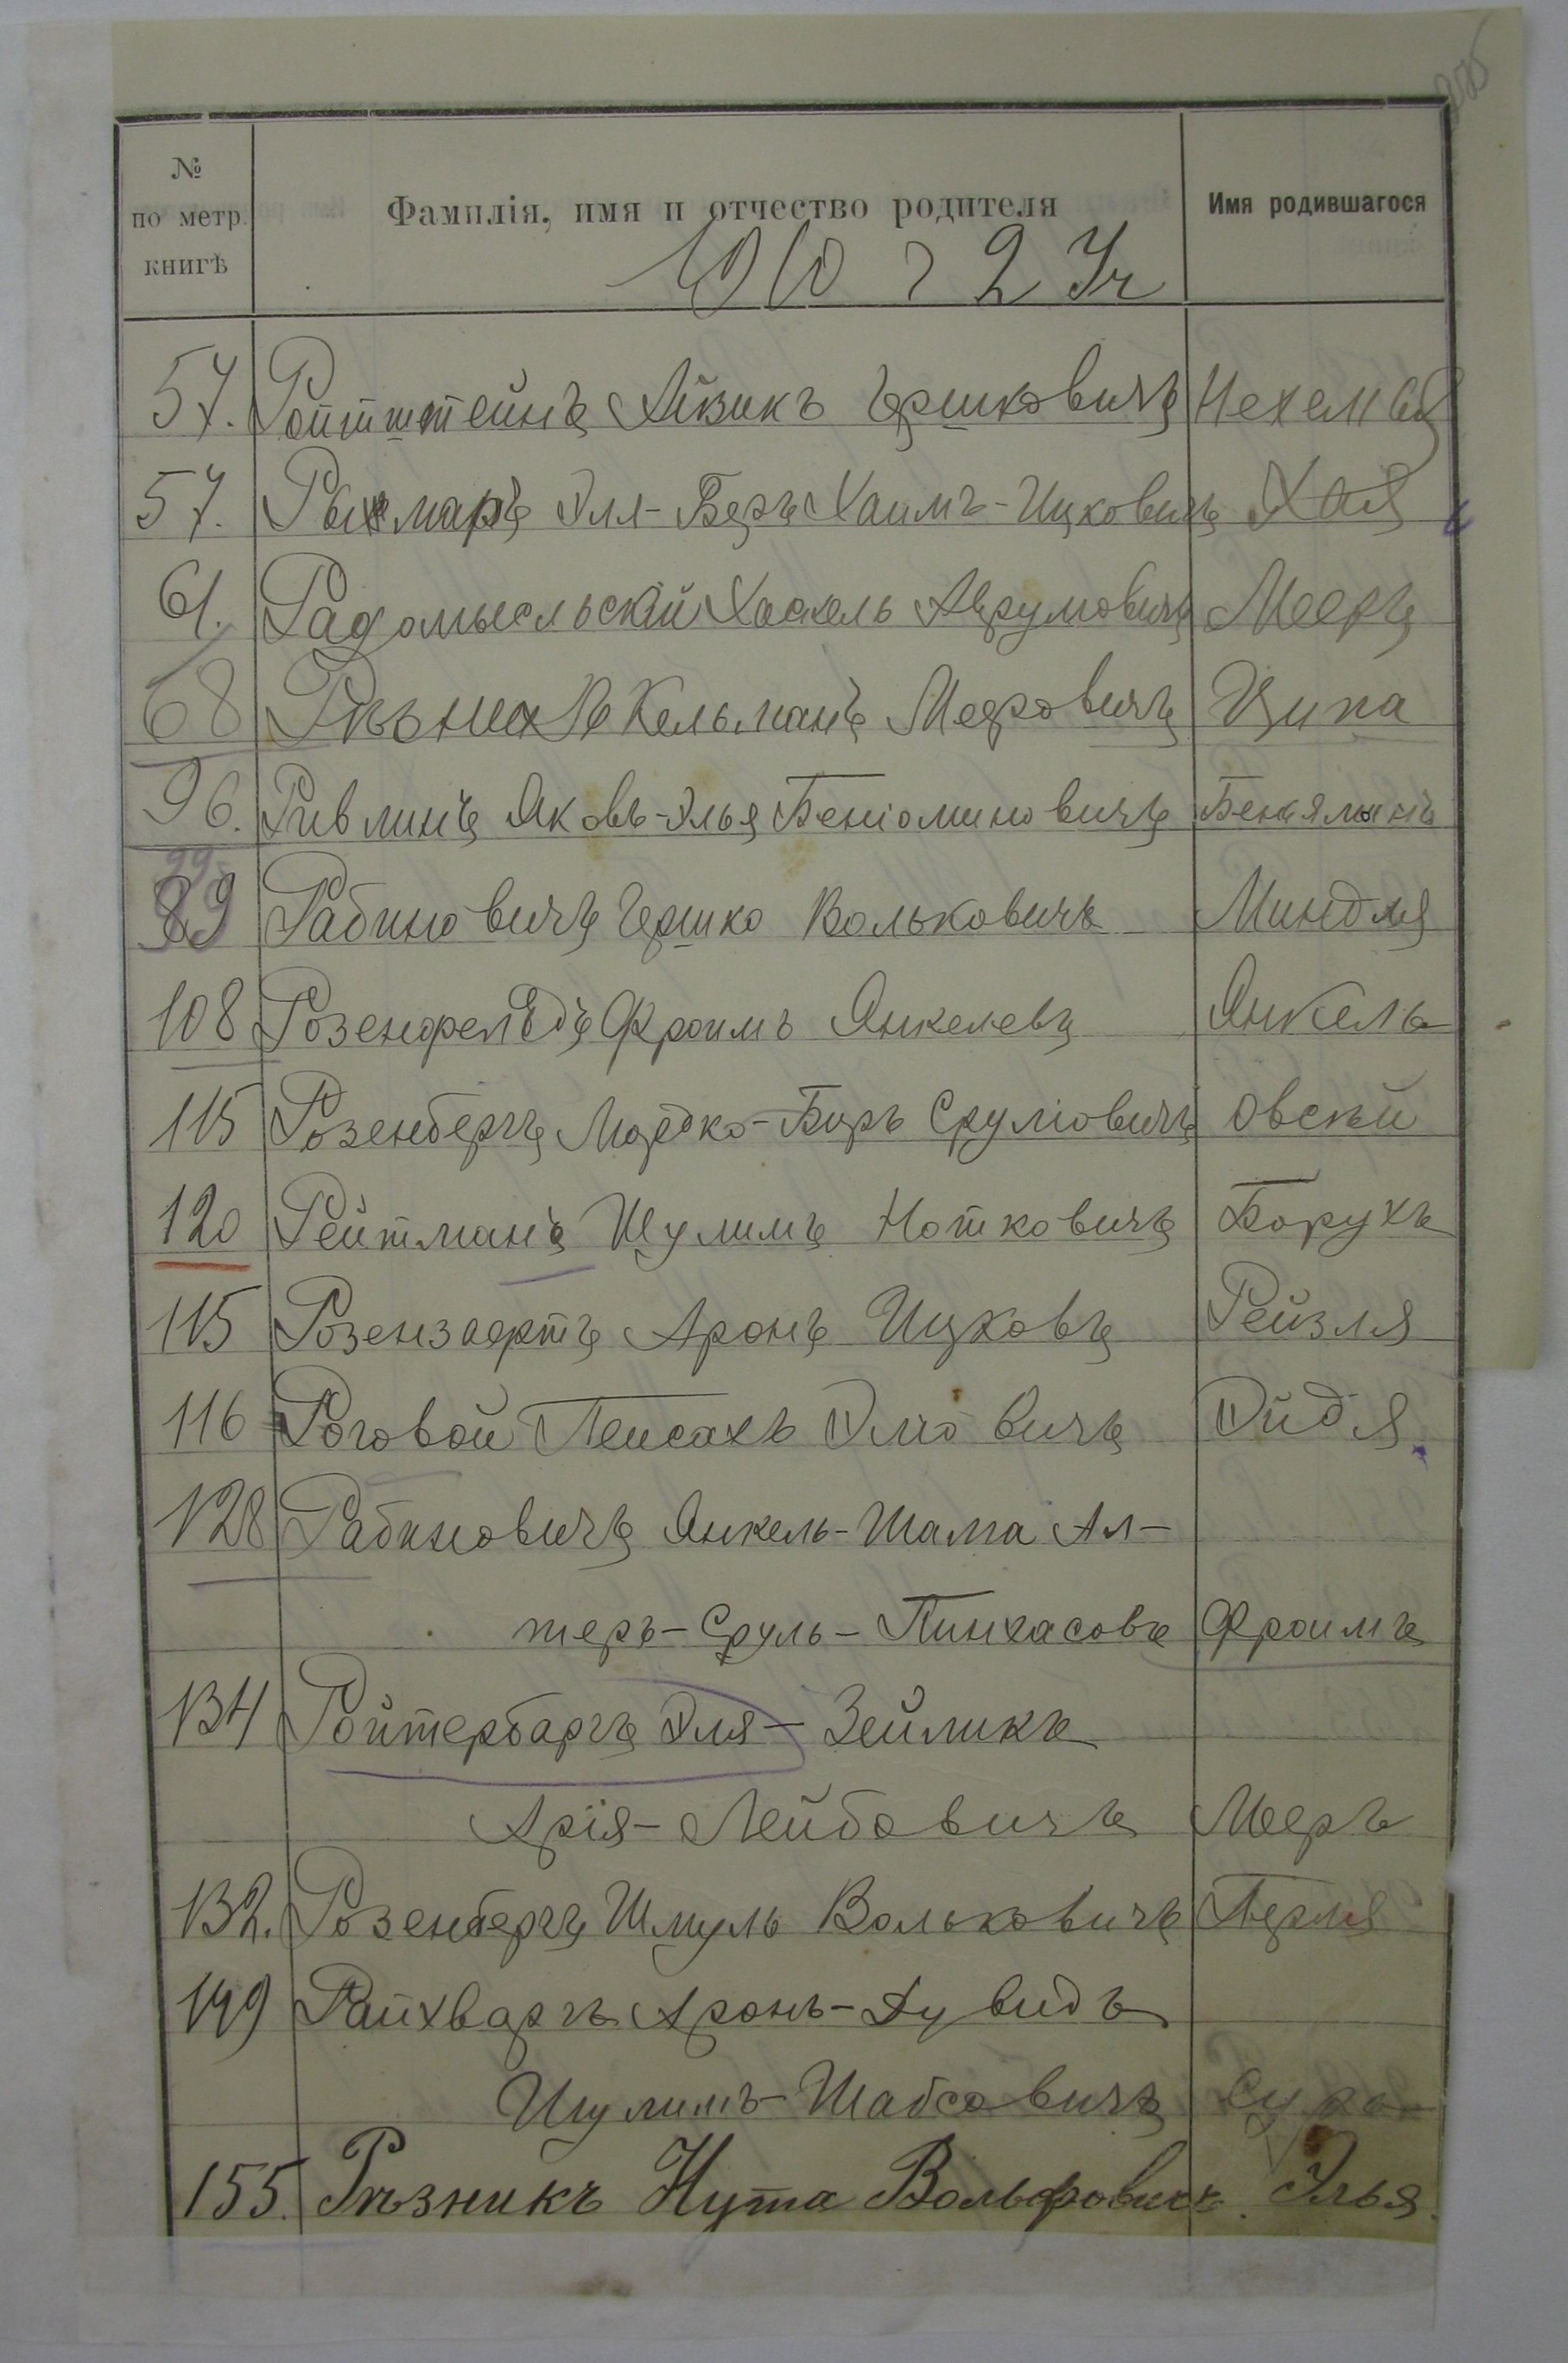 №
по метр.
книгѣ
Фамилія, имя и отчество родителя
Имя родившагося
1910 г 2 Уч
57. Ройтштейнъ Айзикъ Гершковичъ Нехемія
57. Эля-Беръ Хаимъ-Ицковичъ Хая
61. Радомысльскій Хаскель Аврумовичъ Мееръ
68 Рѣзникъ Кельманъ Мееровичъ Ципа
96. Ривлинъ Яковъ-Элья Беніоминовичъ Беньяминъ
99
89 Рабиновичъ Гершко Вольковичъ Миндля
108 Розенфельдъ Фроимъ Янкелевъ Янкель
115 Розенбергъ Мордко-Беръ Сруліовичъ Овсѣй
120 Рейтманъ Шулимъ Нотковичъ Борухъ
115 Аронъ Ицковъ Рейзля
116 Роговой Пейсахъ Эліовичъ Эйдя
128 Рабиновичъ Янкель-Шама Ал-
теръ-Сруль-Пинхасовъ Фроимъ
134 Ройтербаргъ Эля-Зейликъ
Арія-Лейбовичъ Мееръ
132. Розенбергъ Шмуль Вольковичъ Перля
149 Райхваргъ Аронъ-Дувидъ
Шулимъ-Шабсовичъ Сура
155. Рѣзникъ Нута Вольфовичъ. Элья.